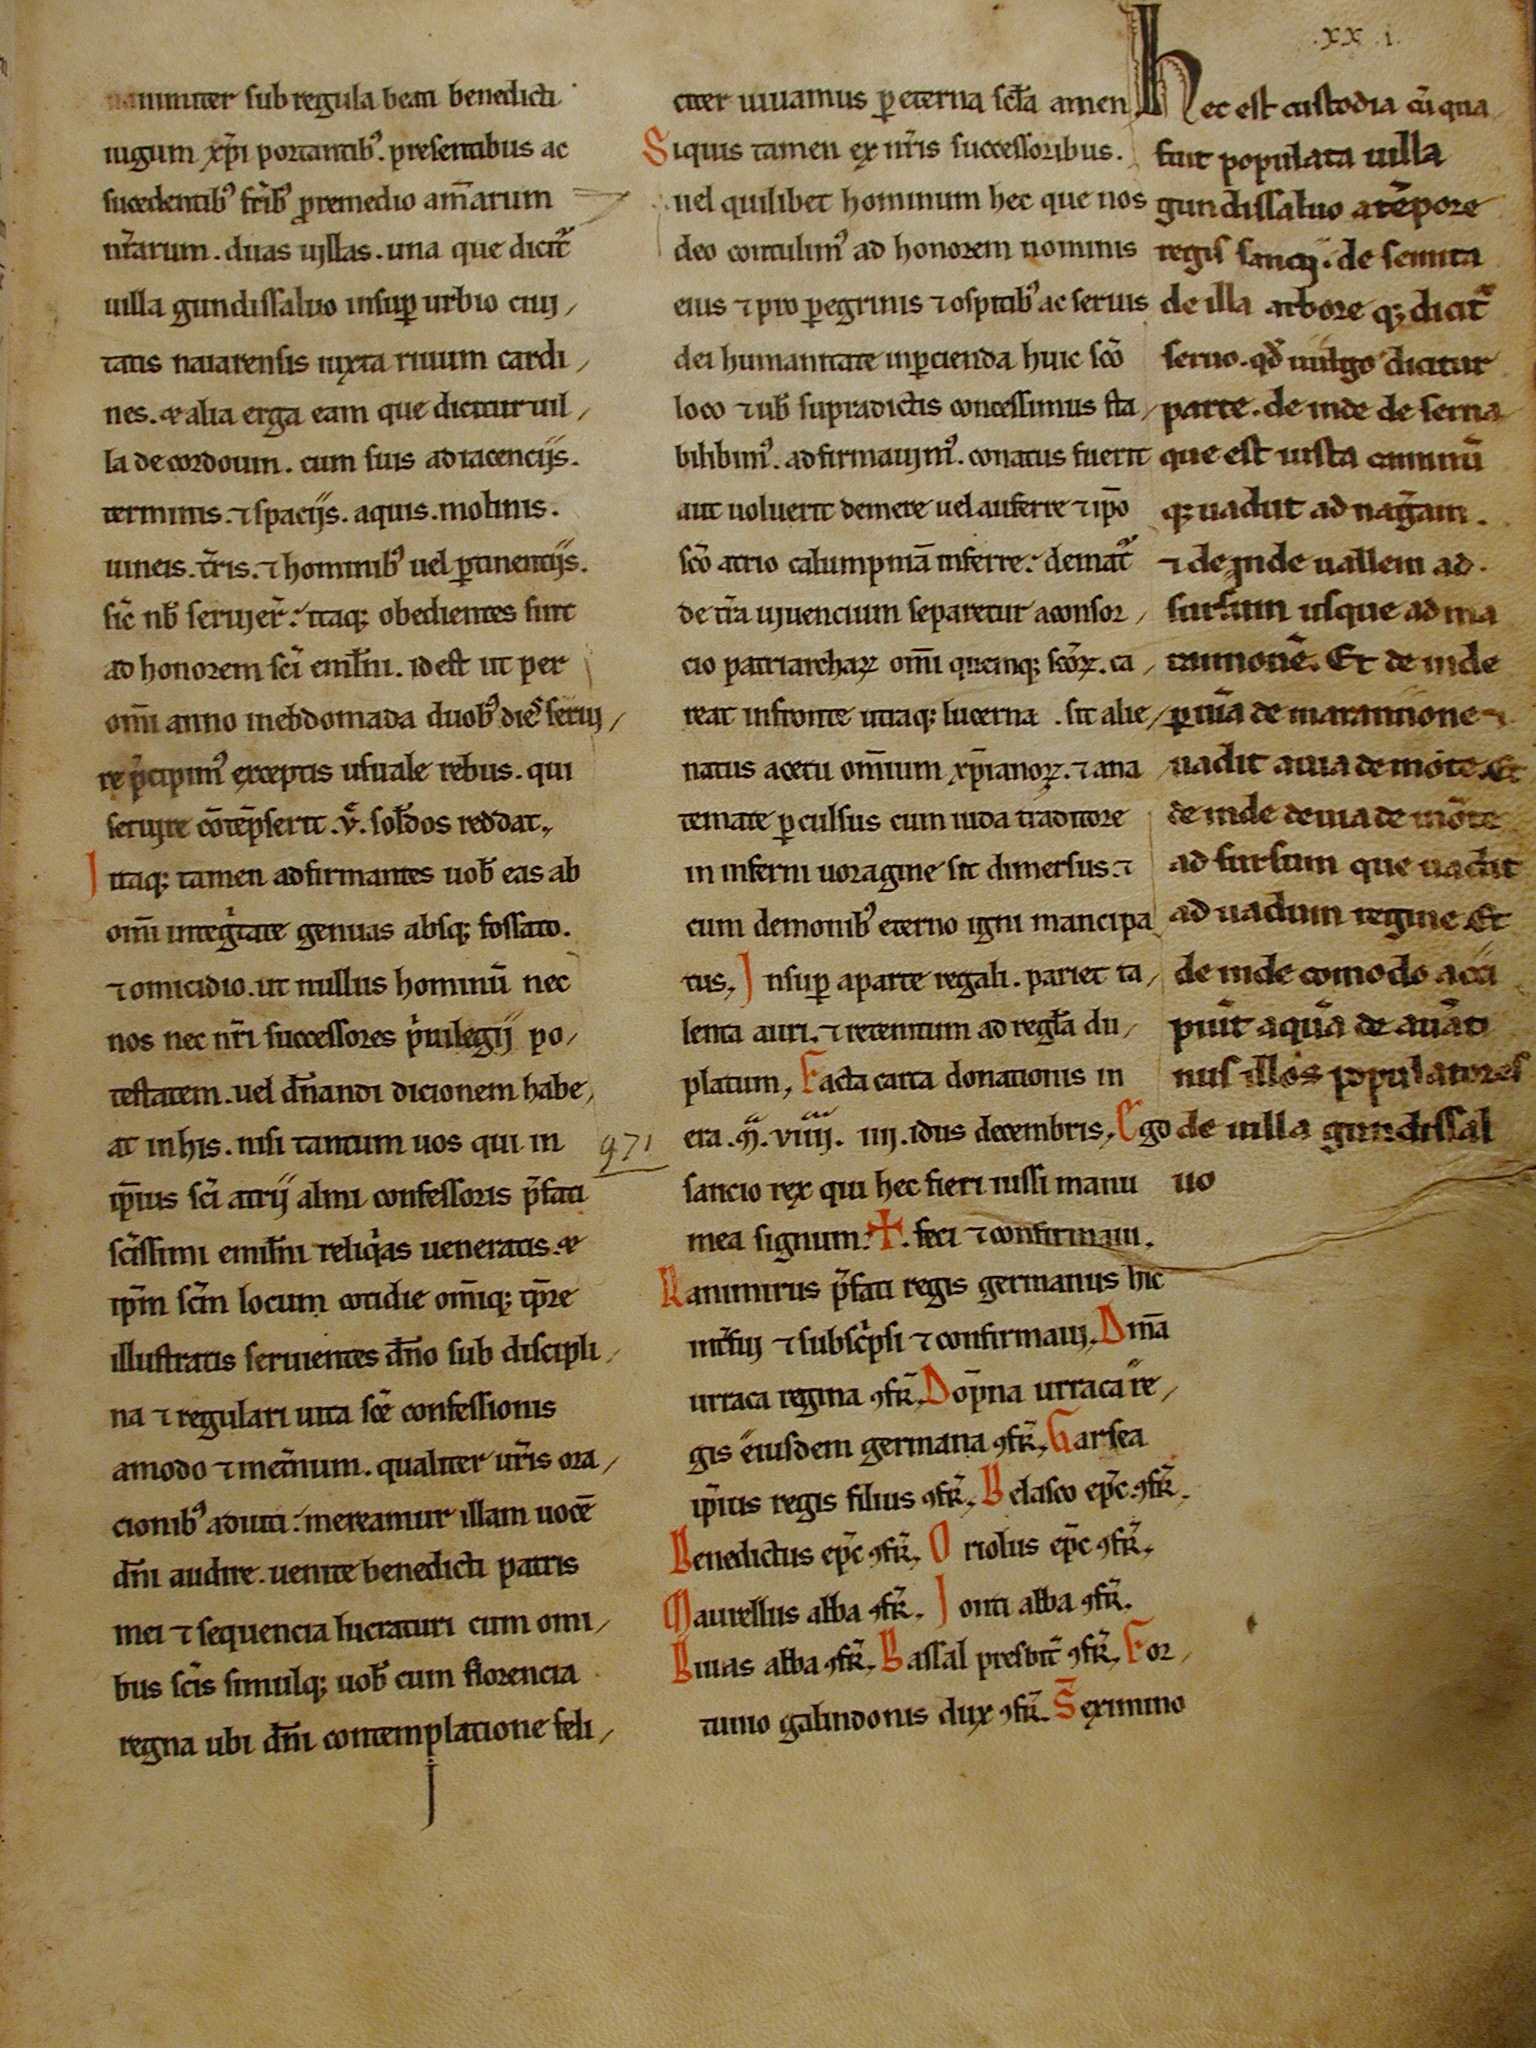 .xx.i.
nanimiter sub regula beati benedicti
iugum xp̄i portantibꝰ. presentibus ac
sucedentibꝰ fr̄ibꝰ ꝓ remedio am̄arum
nr̄arum. duas uillas. una que dicit᷑
uilla gundissaluo insuꝑ urbio ciui,
tatis naiarensis iuxta riuum cardi,
nes. & alia erga eam que dicitur uil,
la de cordouin. cum suis adiacencijs.
terminis. ⁊ spacijs. aquis. molinis.
uineis. tr̄is. ⁊ hominibꝰ uel ꝑtinentijs.
sic̄ nb̄ seruier̄: itaqꝫ obedientes sint
ad honorem sc̄i emil̄ni. id est ut per
om̄i anno inebdomada duobꝰ dieꝰ serui,
re p̄cipimꝰ exceptis usuale rebus. qui
seruire cōtēpserit .v̄. sol̄dos reddat,
Itaqꝫ tamen adfirmantes uob̄ eas ab
om̄i integ̓tate genuas absqꝫ fossato.
⁊ omicidio. ut nullus hominū nec
nos nec nr̄i successores p̓uilegij po,
testatem. uel dn̄andi dicionem habe,
at in his. nisi tantum uos qui in
ip̄ius sc̄i atrij almi confessoris p̄fati
sc̄issimi emil̄ni reliq̓as ueneratis. &
ip̄m sc̄m locum cotidie om̄iqꝫ tp̄re
illustratis seruientes dn̄o sub discipli,
na ⁊ regulari uita sc̄e confessionis
amodo ⁊ inet̄num. qualiter ur̄is ora,
cionibꝰ adiuti: mereamur illam uocē
dn̄i audire. uenite benedicti patris
mei ⁊ sequencia lucraturi cum omi,
bus sc̄is simulqꝫ uob̄ cum florencia
regna ubi dn̄i contemplatione feli,
citer uiuamus ꝑ eterna sc̄la amen
Siquis tamen ex nr̄is successoribus.
uel quilibet hominum hec que nos
deo contulimꝰ ad honorem nominis
eius ⁊ pro ꝑegrinis ⁊ ospitibꝰ ac seruis
dei humanitate inꝑcienda huic sc̄o
loco ⁊ ub̄ supradictis concessimus sta,
bilibimꝰ. adfirmauimꝰ. conatus fuerit
aut uoluerit demere uel auferre ⁊ ip̄o
sc̄o atrio calumpniā inferre: demat᷑
de tr̄a uiuencium separetur a consor,
cio patriarchaꝝ om̄i quemqꝫ sc̄oꝝ. ca,
reat in fronte utraqꝫ lucerna. sit alie,
natus a cetu om̄ium xp̄ianoꝝ. ⁊ ana
temate ꝑculsus cum iuda traditore
in inferni uoragine sit dimersus ⁊
cum demonibꝰ eterno igni mancipa
tus, Insuꝑ a parte regali. pariet ta,
lenta auri. ⁊ retentum ad regl̄a du,
platum, Facta carta donationis in
971
era .M̄. viiii. iiij. idus decembris, Ego
sancio rex qui hec fieri iussi manu
mea signum. ✝. feci ⁊ confirmaui.
Ranimirus p̄fati regis germanus hic
int̄fui ⁊ subsc̓psi ⁊ confirmaui, Dm̄a
urraca regina ꝯfr̄. Dop̄na urraca re,
gis eiusdem germana ꝯfr̄, Garsea
ip̄ius regis filius ꝯfr̄, Belasco ep̄c ꝯfr̄,
Benedictus ep̄c ꝯfr̄, Oriolus ep̄c ꝯfr̄,
Maurellus abba ꝯfr̄. Ionti abba ꝯfr̄.
Biuas abba ꝯfr̄, Bassal presbit̄ ꝯfr̄, For,
tunio galindonis dux ꝯfr̄. Seximino
Hec est custodia cū qua
fuit populata uilla
gundissaluo a tēpore
regis sancij. de semita
de illa arbore qꝫ dicit᷑
seruo. qd̄ uulgo dicitur
parte. de inde de serna
que est iusta caminū
qꝫ uadūt ad nagaram.
⁊ de inde uallem ad.
sursum usque ad ma
tannonē. Et de inde
ꝑ uia de marannone
uadit a uia de mōte. Et
de inde de uia de mōte
ad sursum que uadit
ad uadum regine Et
de inde comodo acci
piūt aquā de auāti
nus illos populatores
de uilla gundissal
uo